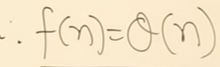 ∴ f(n)=θ(n)